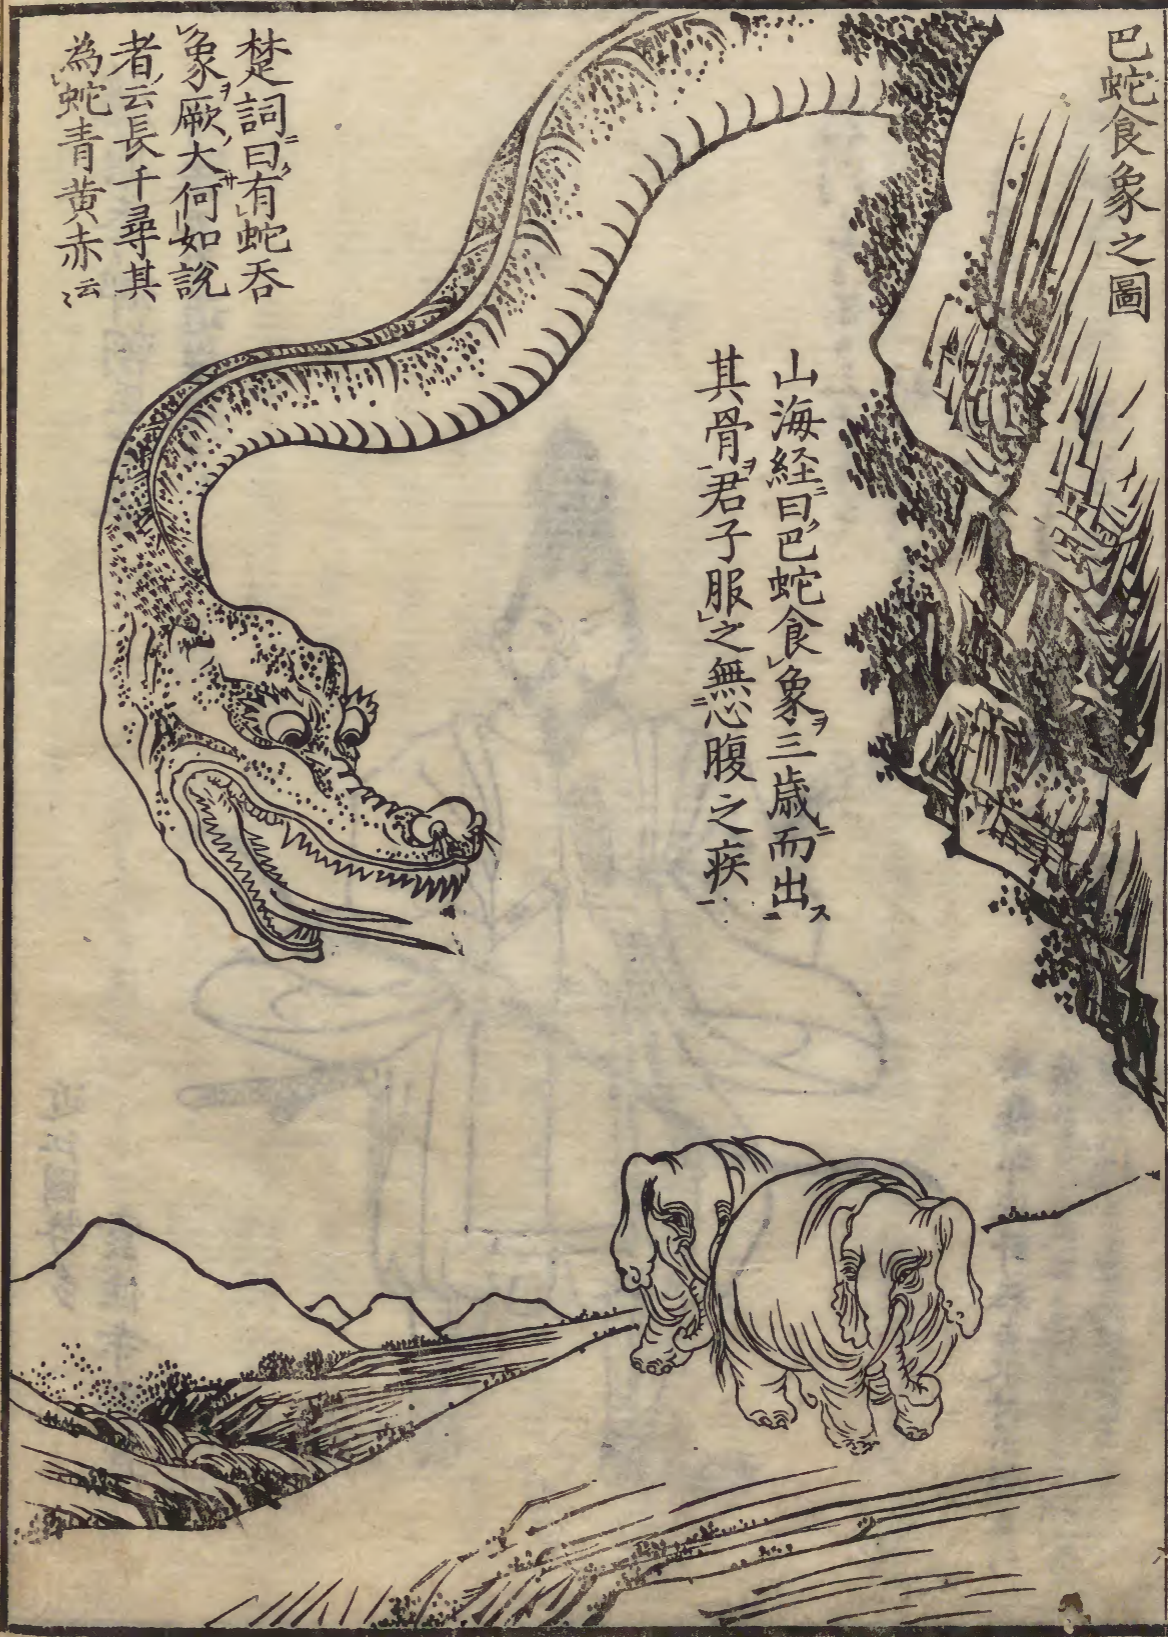 巴蛇食象之圖
山海経曰巴蛇食象三歳而出
其骨君子服之無心腹之疾
楚詞曰有蛇吞
象厥大何如説
者云長千尋其
為蛇青黄赤云〻